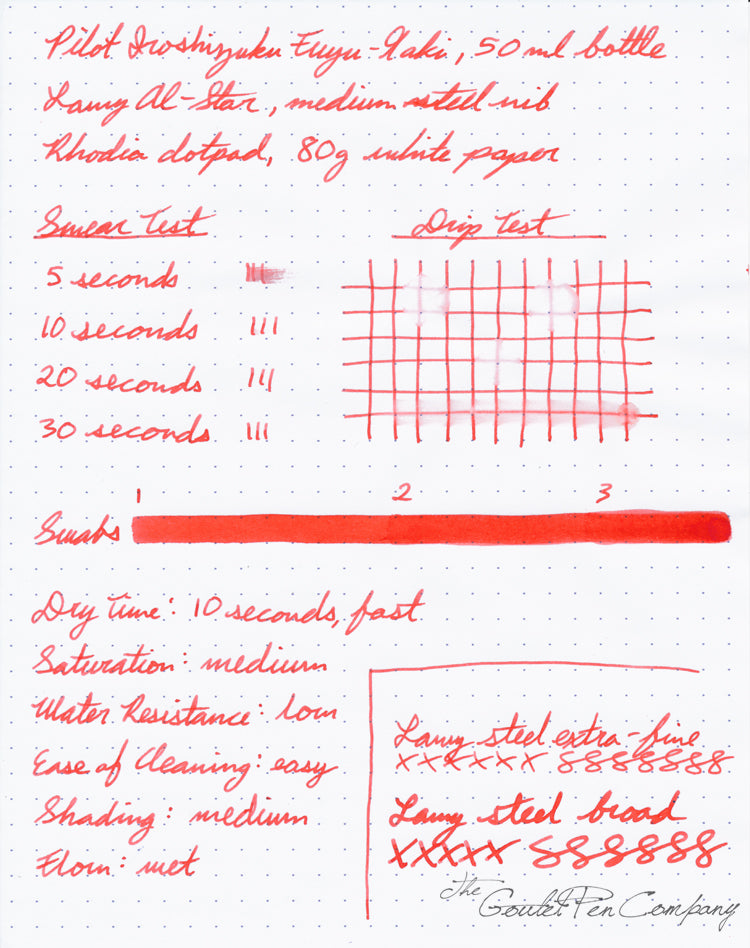 Pilot Iroshizuku Fuyu-Gaki, 50ml bottle
Lamy Al-Star, medium steel nib
Rhodia dotpad, 80g white paper
Smear Test
5 seconds
10 seconds
20 seconds
30 seconds
Drip Test
1 2 3
Swabs
Dry Time: 10 seconds, fast
Saturation: medium
Water Resistance: low
Ease of Cleaning: easy
Shading: medium
Flow: wet
Lamy steel extra-fine
xxxxxx 8888888
Lamy steel broad
xxxxx 888888
The Goulet Pen Company